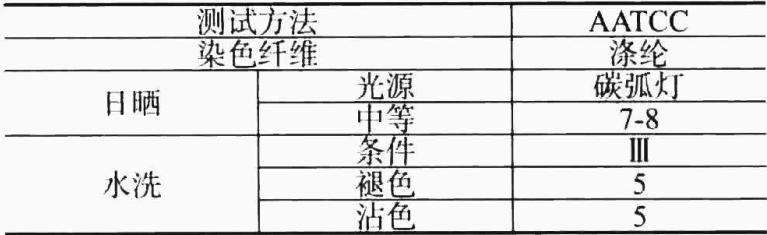 测试方法 AATCC
染色纤维 涤纶
日晒 光源 碳弧灯
中等 7-8
水洗 条件 Ⅲ
褪色 5
沾色 5